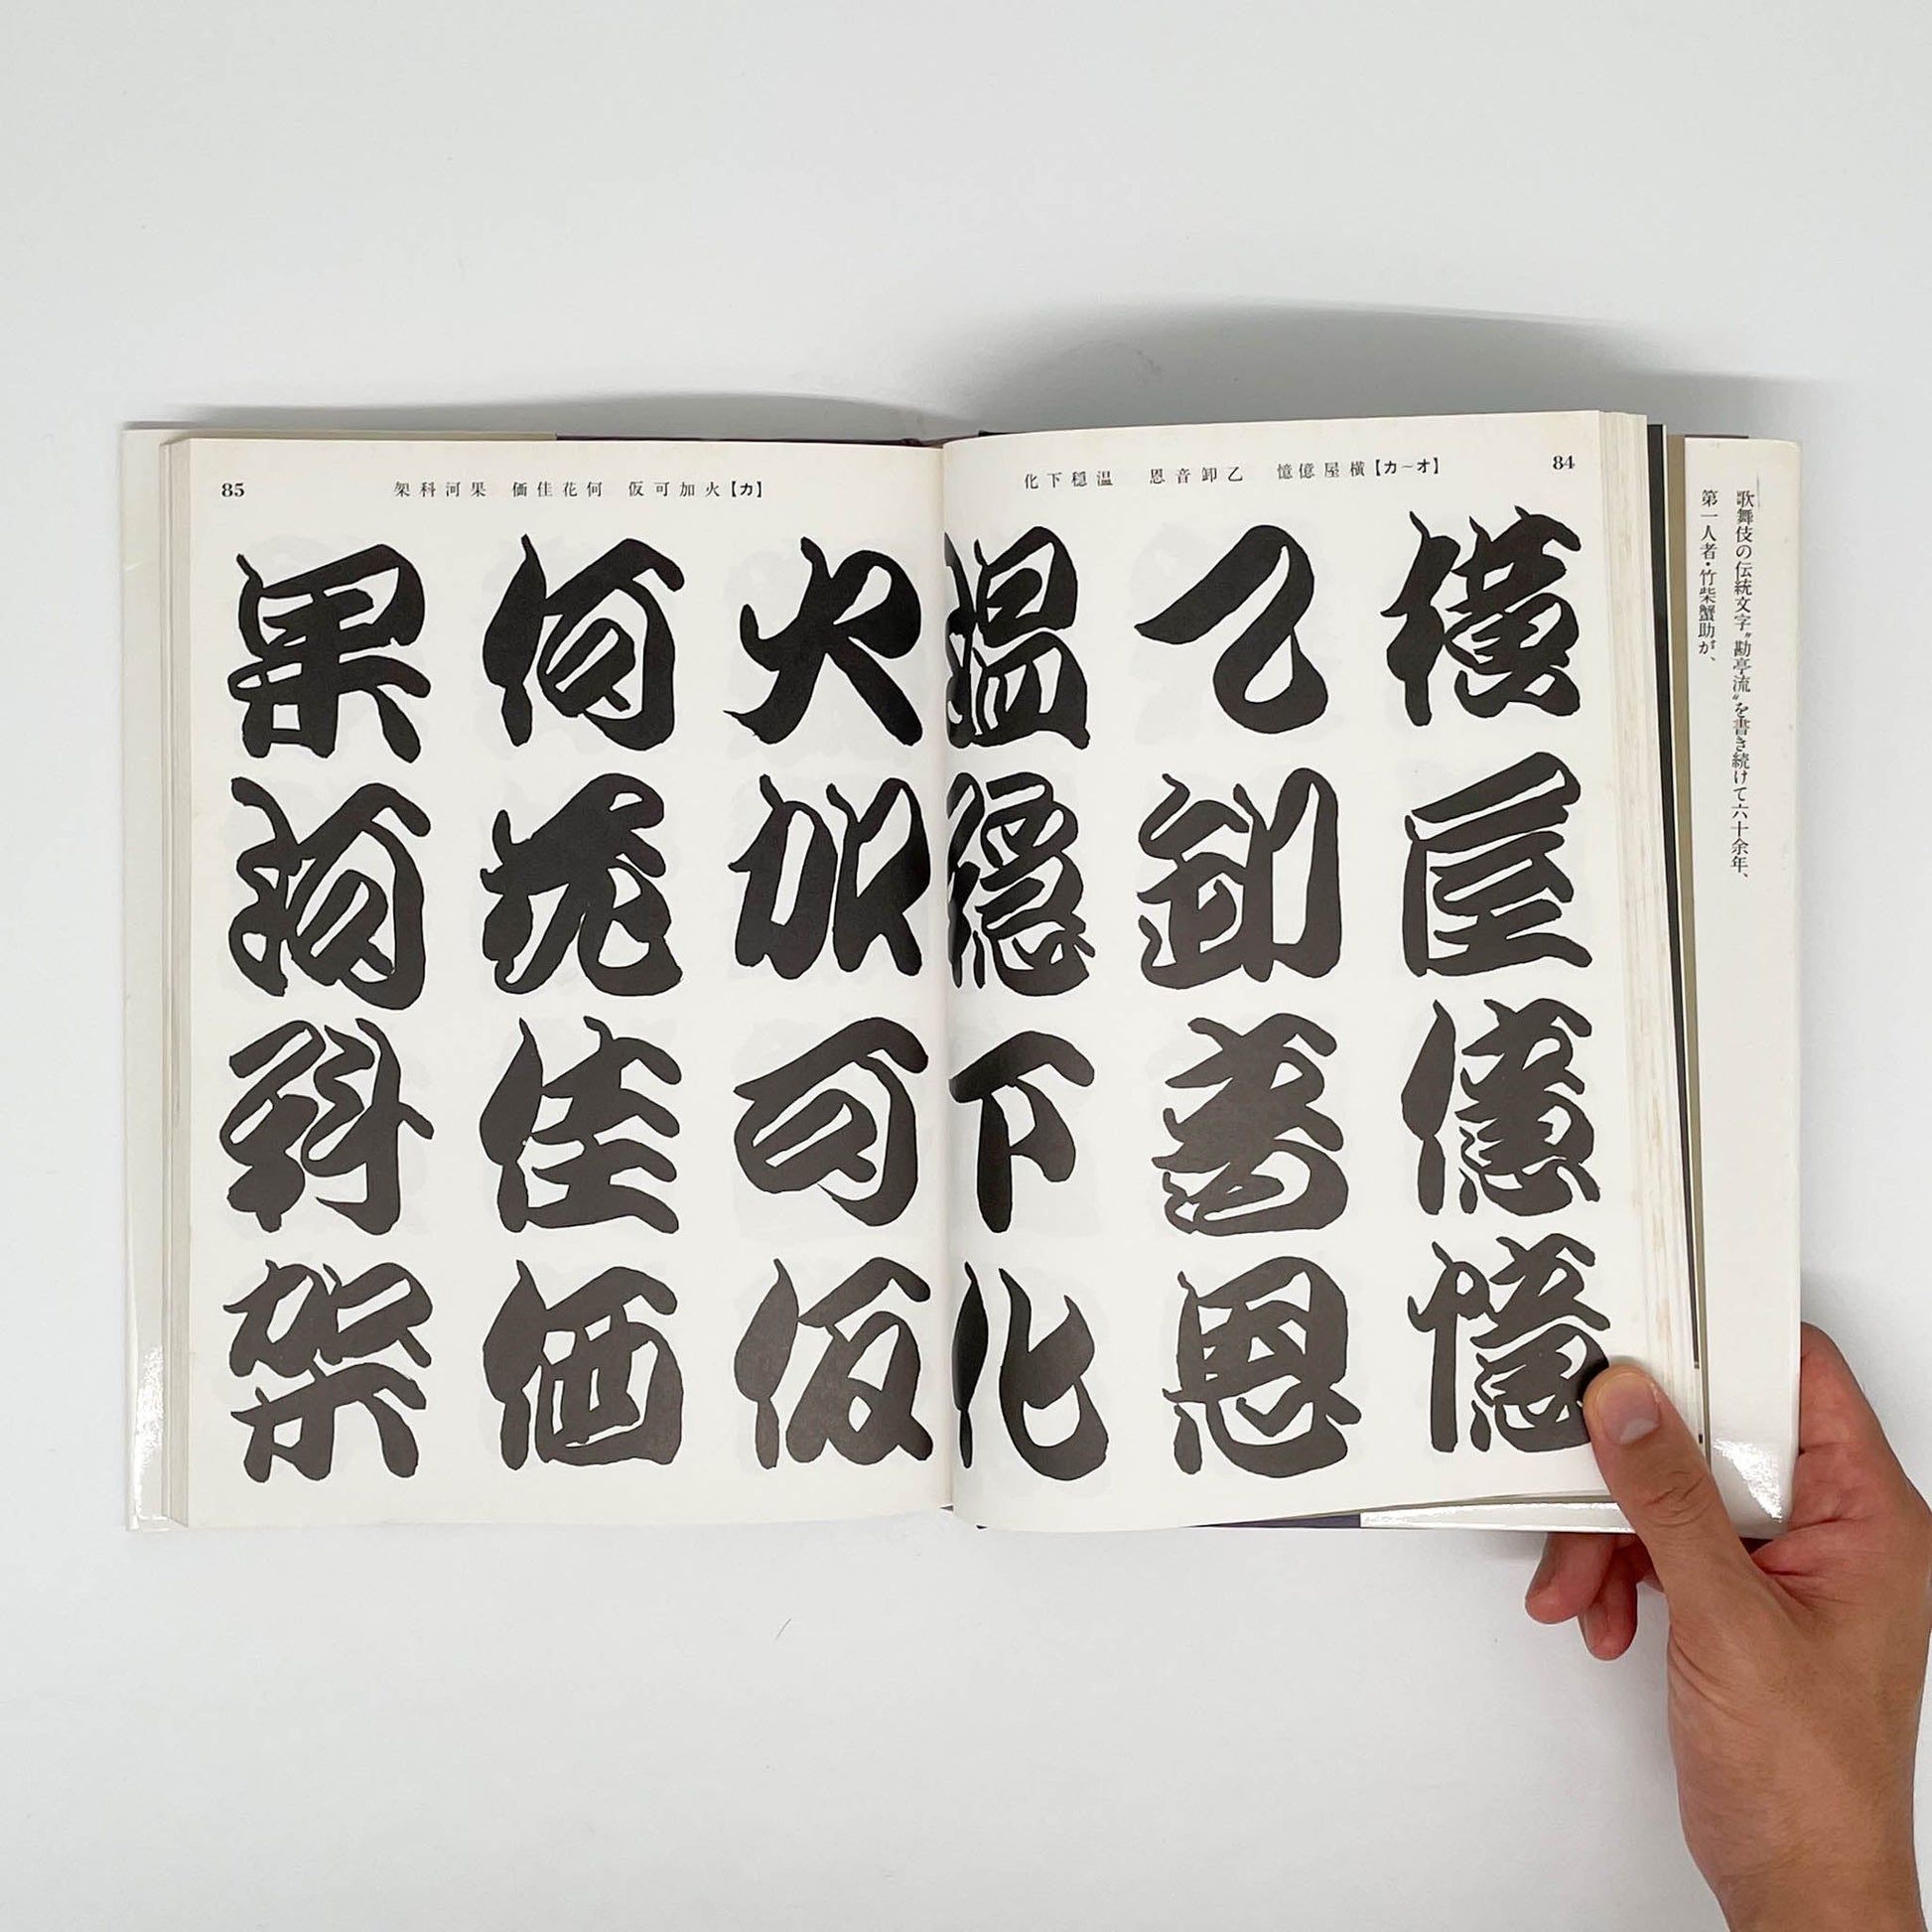 歌舞伎の伝統文字〝勘亭流〟を書き続けて六十余年、
第一人者・竹柴蟹助が、
84
【オ〜カ】横屋億憶　乙卸音恩　温穏下化
横屋億憶
乙卸音恩
温穏下化
85
【カ】火加可仮　何花佳価　果河科架
火加可仮
何花佳価
果河科架